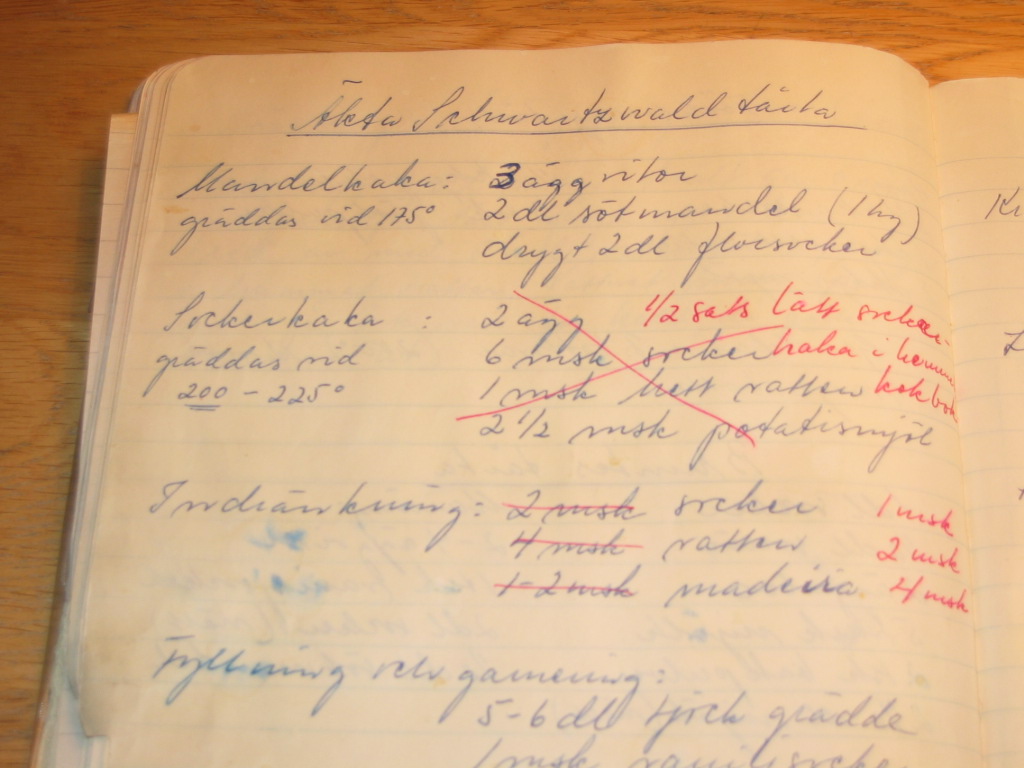 Äkta Schwaitzwald tårta
Mandelkaka: 3 äggvitor
gräddas vid 175° 2 dl sötmandel (1 hg)
drygt 2 dl florsocker
Sockerkaka : 2 ägg 1/2 sats lätt socker-
gräddas vid 6 msk socker kaka i hemme
200 - 225° 1 msk hett vatten kokbok
2 1/2 msk potatismjöl
Indränkning: 2 msk socker 1 msk
4 msk vatten 2 msk
1-2 msk madeira 4 msk
Fyllning och garnering:
5-6 dl tjock grädde
1 msk vaniljsocker